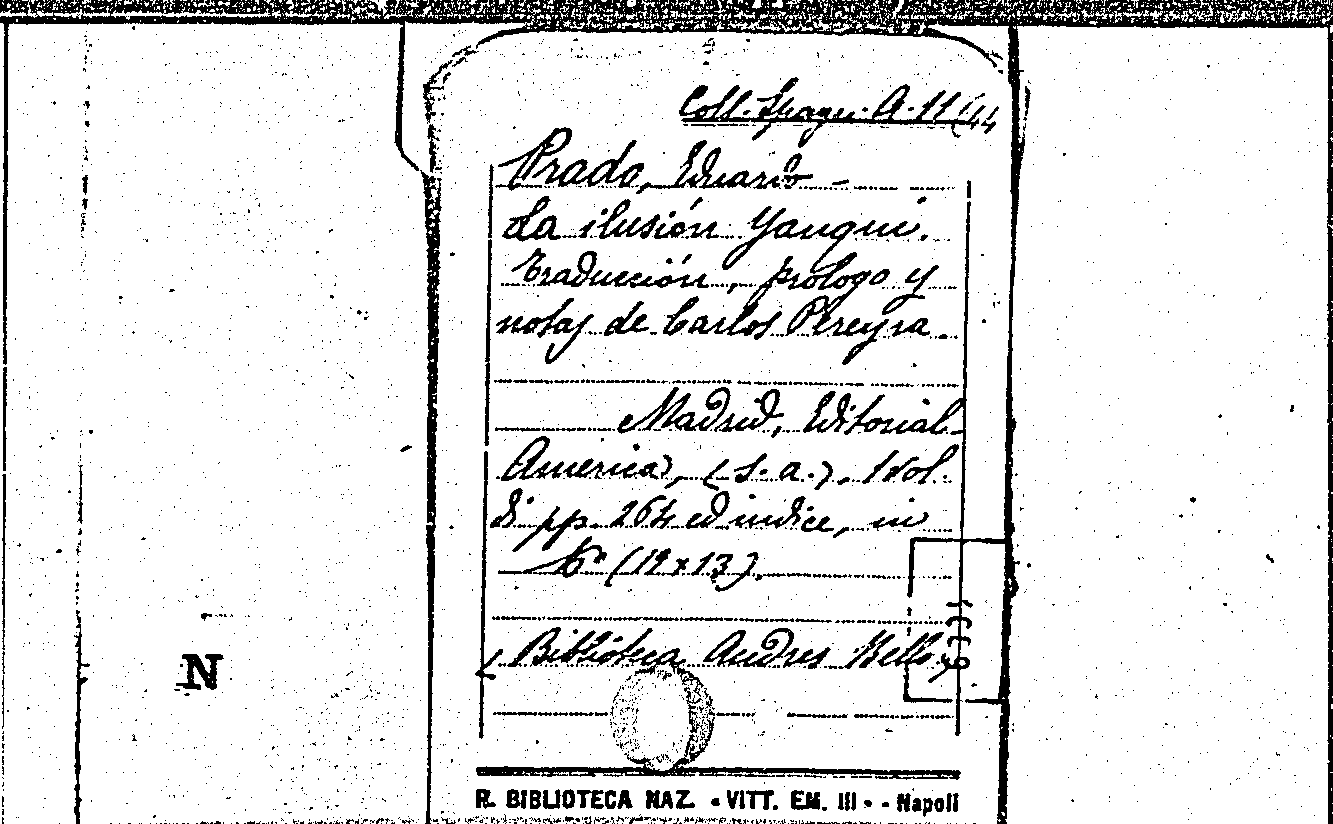 Coll. Spagn. A. 11 (44
Prado, Eduardo -
La ilusión Yanqui.
Traducción, prologo y
notas de Carlos Pereyra.
Madrid, Editorial-
America, (s. a.). 1 vol.
di pp. 264 ed indice, in
(19x13).
( Biblioteca Andres Bello)
N
R. BIBLIOTECA NAZ. - VITT. EM. III - - Napoli